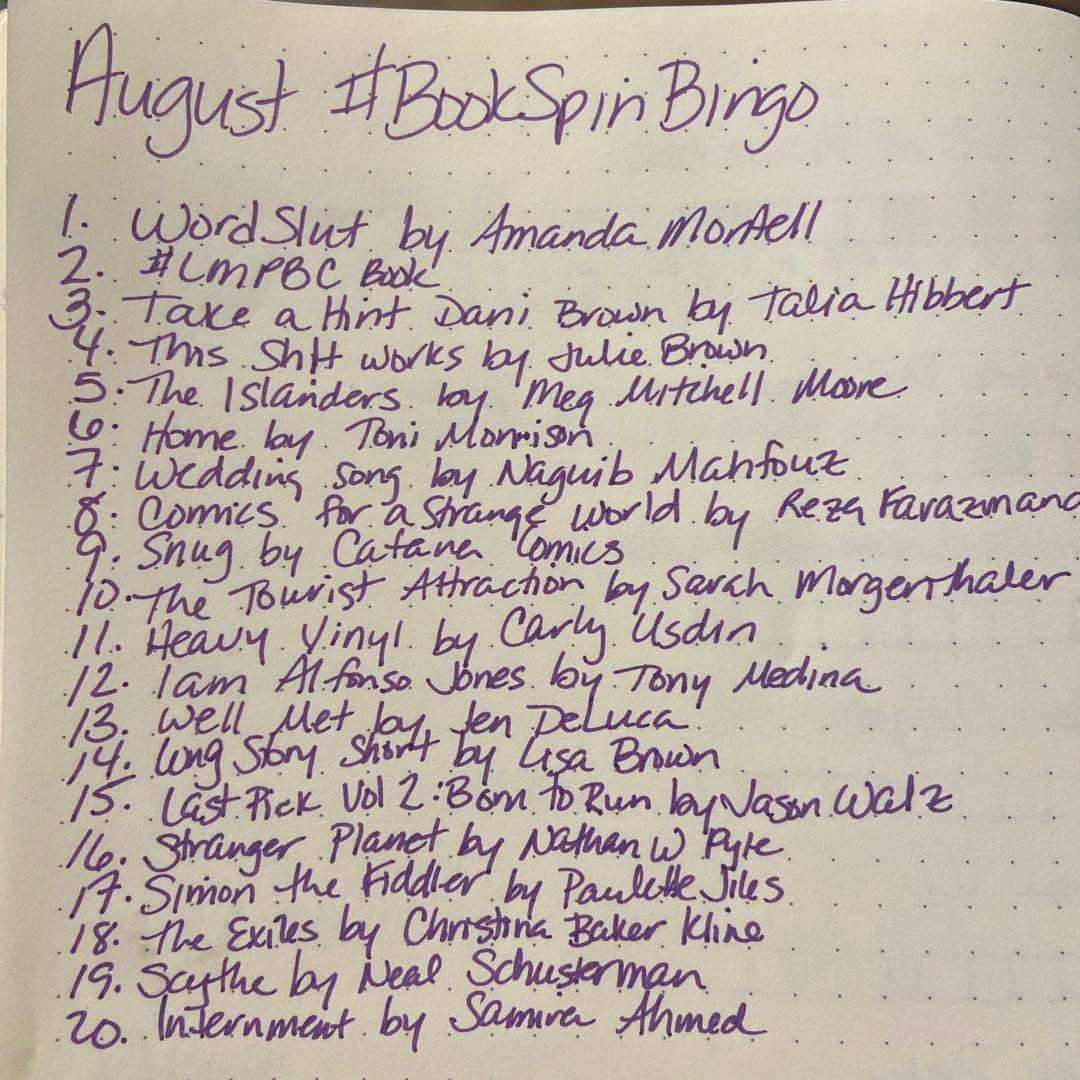 August #BookSpinBingo
1. WordSlut by Amanda Montell
2. #LMPBC Book
3. Take a Hint Dani Brown by Talia Hibbert
4. This Shit works by Julie Brown
5. The Islanders by Meg Mitchell Moore
6. Home by Toni Morrison
7. Wedding Song by Naguib Mahfouz
8. Comics for a Strange World by Reza Farazmand
9. Snug by Catana Comics
10. The Tourist Attraction by Sarah Morgenthaler
11. Heavy Vinyl by Carly Usdin
12. I am Alfonso Jones by Tony Medina
13. Well Met by Jen DeLuca
14. Long Story Short by Lisa Brown
15. Last Pick Vol 2: Born to Run by Jason Walz
16. Stranger Planet by Nathan W Pyle
17. Simon the Fiddler by Paulette Jiles
18. The Exiles by Christina Baker Kline
19. Scythe by Neal Schusterman
20. Internment by Samira Ahmed